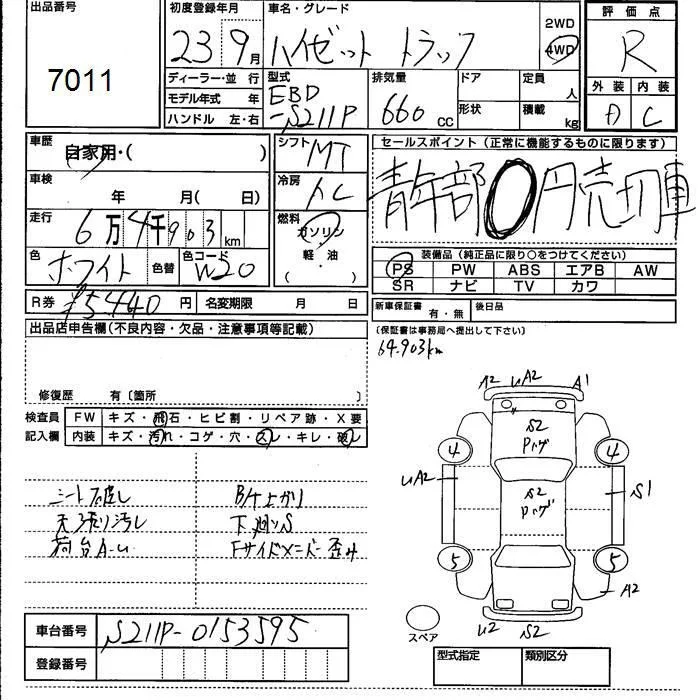 出品番号
7011
初度登録年月
23 9月
車名・グレード
ハイゼット トラック
2WD
4WD
評価点
R
外装 内装
A C
ディーラー・並 行
モデル年式 年
ハンドル 左・右
型式
EBD
-S211P
排気量
660 cc
ドア
形状
定員
人
積載
kg
車歴
自家用・( )
車検
年 月( 日)
走行
6万4千903km
色
ホワイト
色替
色コード
W20
R券
¥5,440円
名変期限 月 日
シフト
MT
冷房
AC
燃料
ガソリン
軽・油
( )
セールスポイント(正常に機能するものに限ります)
青年部 0円売切車
装備品(純正品に限り○をつけてください)
PS PW ABS エアB AW
SR ナビ TV カワ
新車保証書
有・無
後日品
(保証書は事務局へ提出して下さい)
64.903km
出品店申告欄(不良内容・欠品・注意事項等記載)
修復歴 有〔箇所 〕
検査員
記入欄
FW キズ・飛石・ヒビ割・リペア跡・X要
内装 キズ・汚れ・コゲ・穴・スレ・キレ・破レ
シート破し
天張り汚し
荷台A-U
B仕上がり
下廻りS
Fサイドメンバー歪み
A2 UA2 A1
S2
Pハゲ
4 4
UA2
S2
Pハゲ
S1
5 5
A2
U2 S2
スペア
車台番号
S211P-0153595
登録番号
型式指定
類別区分